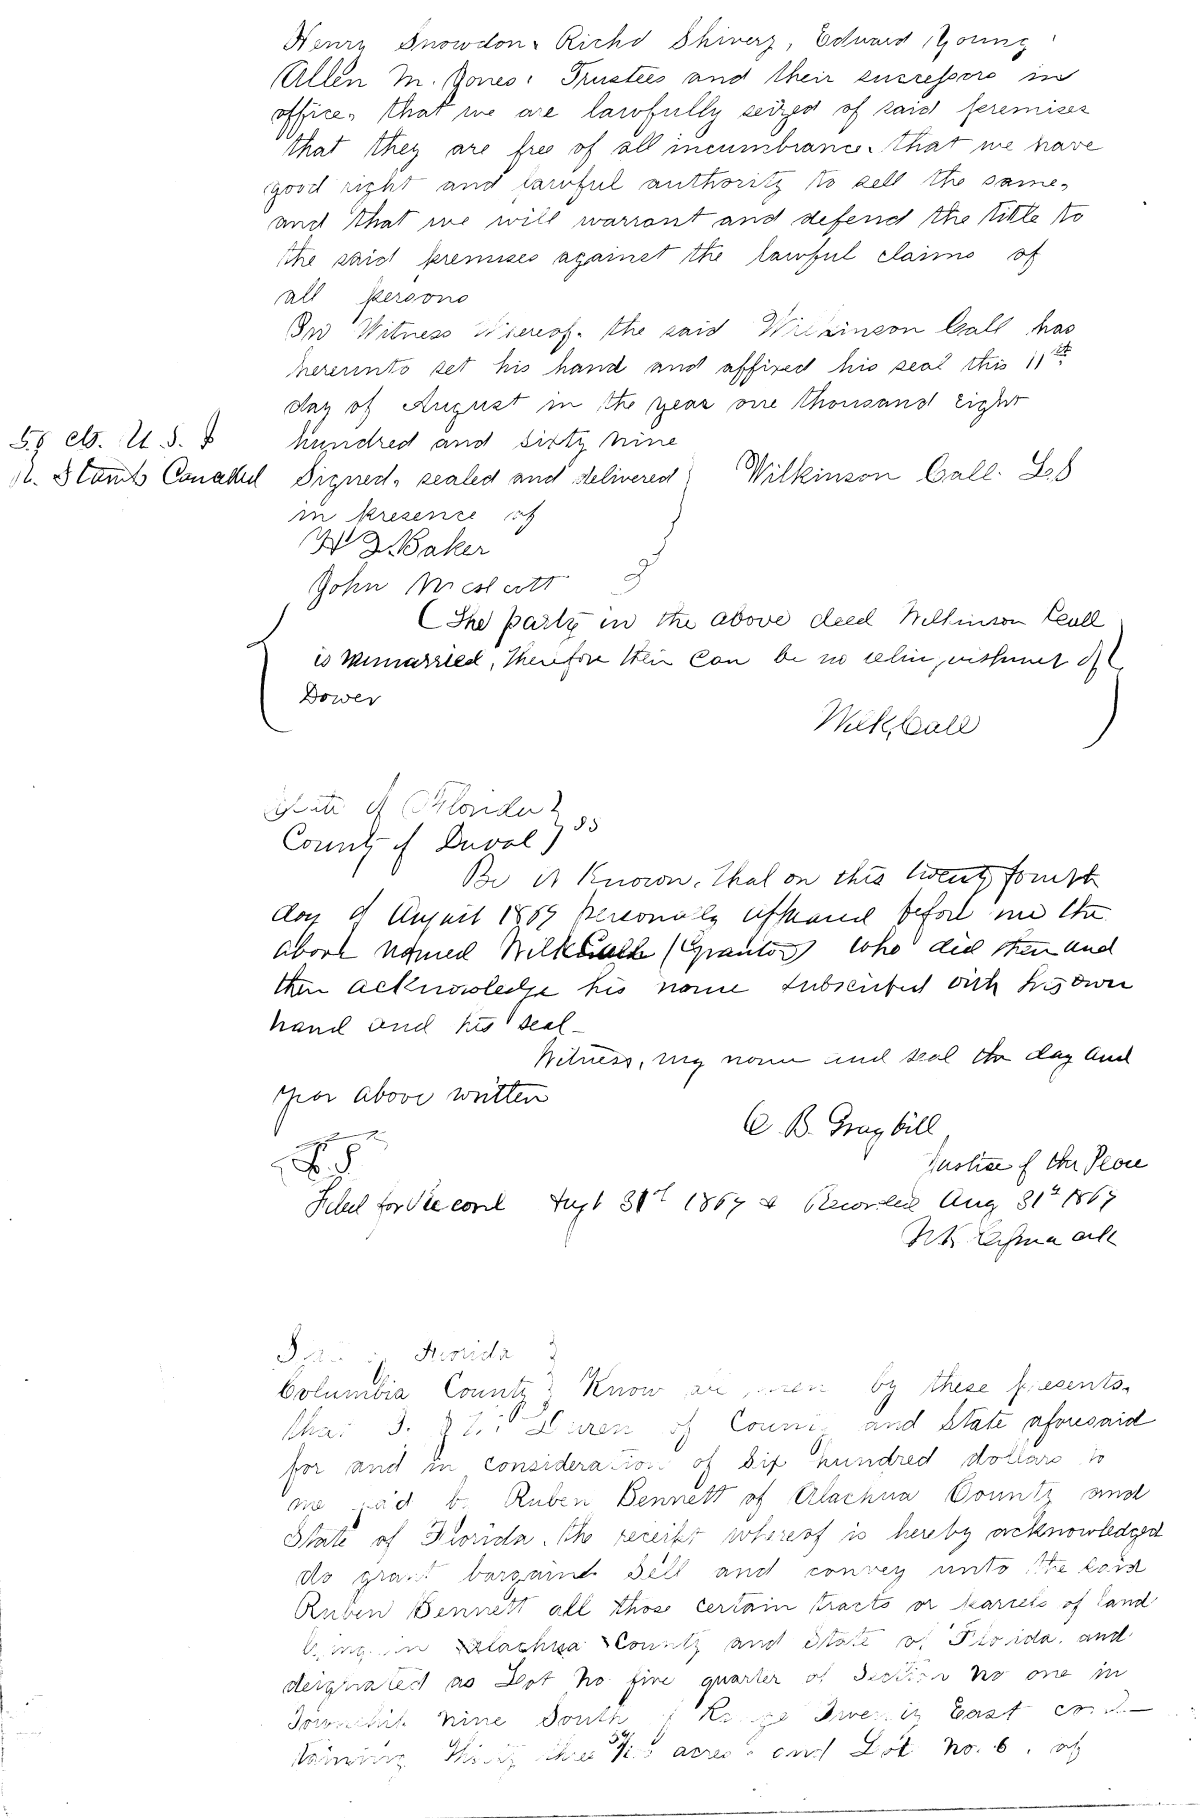 Henry Snowdon, Richd Shiverz, Edward Young,
Allen M. Jones, Trustees and their successors in
office, that we are lawfully seized of said premises
that they are free of all incumbrance. that we have
good right and lawful authority to sell the same,
and that we will warrant and defend the title to
the said premises against the lawful claims of
all persons
In Witness Whereof. the said Wilkinson Call has
hereunto set his hand and affixed his seal this 11th
day of August in the year one thousand eight
50 cts. U. S. hundred and sixty nine
Stamp Canceled Signed, sealed and delivered Wilkinson Call. L.S
in presence of
Baker
John
(The party in the above deed Wilkinson Call
is unmarried, therefore their can be no relinquishment of
Dower
Wilk, Call
State of Florida } ss
County of Duval }
Be it Known, that on this twenty fourth
day of August 1869 personally appeared before me the
above named Wilk Call (Grantor) who did then and
then acknowledge his name subscribed with his own
hand and his seal_
Witness, my name and seal the day and
year above written
C. B. Graybill
L.S. Justice of the Peace
Filed for Record Augt 31st 1869 & Recorded Aug 31st 1869
State of Florida }
Columbia County } Know all men by these presents,
that I. of County and State aforesaid
for and in consideration of Six hundred dollars to
me paid by Ruben Bennett of Alachua County and
State of Florida. the receipt whereof is hereby acknowledged
do grant bargaind sell and convey unto the said
Ruben Bennett all those certain tracts or parcels of land
being in Alachua County and State of Florida. and
deignated as Lot No five quarter of Section No one in
Township nine South of Range Twenty East con
taining Thirty three acres. and Lot No. 6. of